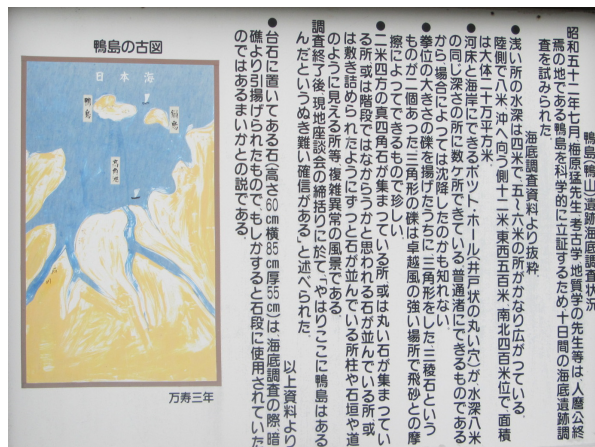 鴨島(鴨山)遺跡海底調査状況
昭和五十二年七月、梅原猛先生、考古学、地質学の先生等は、人麿公終
焉の地である鴨島を科学的に立証するため十日間の海底遺跡調
査を試みられた。
海底調査資料より抜粋
●浅い所の水深は四米で五〜六米の所がかなり広がつている。
陸側で八米、沖へ向う側十二米、東西五百米、南北四百米位で、面積
は大体二十万平方米。
●河床と海岸にできるポツト・ホール(井戸状の丸い穴)が、水深八米
の同じ深さの所に数ケ所できている。普通渚にできるものである
から、場合によつては沈降したのかも知れない。
●拳位の大きさの礫を揚げたうちに、三角形をした三稜石という
ものが二個あつた。三角形の礫は、卓越風の強い場所で飛砂との摩
擦によつてできるもので珍しい。
●二米四方の真四角石が集まつている所、或は丸い石が集まつてい
る所、或は階段ではなからうかと思われる石が並んでいる所、或
は敷き詰められたようにずつと石が並んでいる所、柱や石垣や道
のように見える所等、複雑異常の風景である。
調査終了後、現地座談会の締括りに於て、「やはりここに鴨島はある
んだというぬき難い確信がある」と述べられた。
以上資料より
●台石に置いてある石(高さ60cm横85cm厚55cm)は、海底調査の際、暗
礁より引揚げられたもので、もしかすると石段に使用されていた
のではあるまいかとの説である。
鴨島の古図
日本海
鴨島
万寿三年